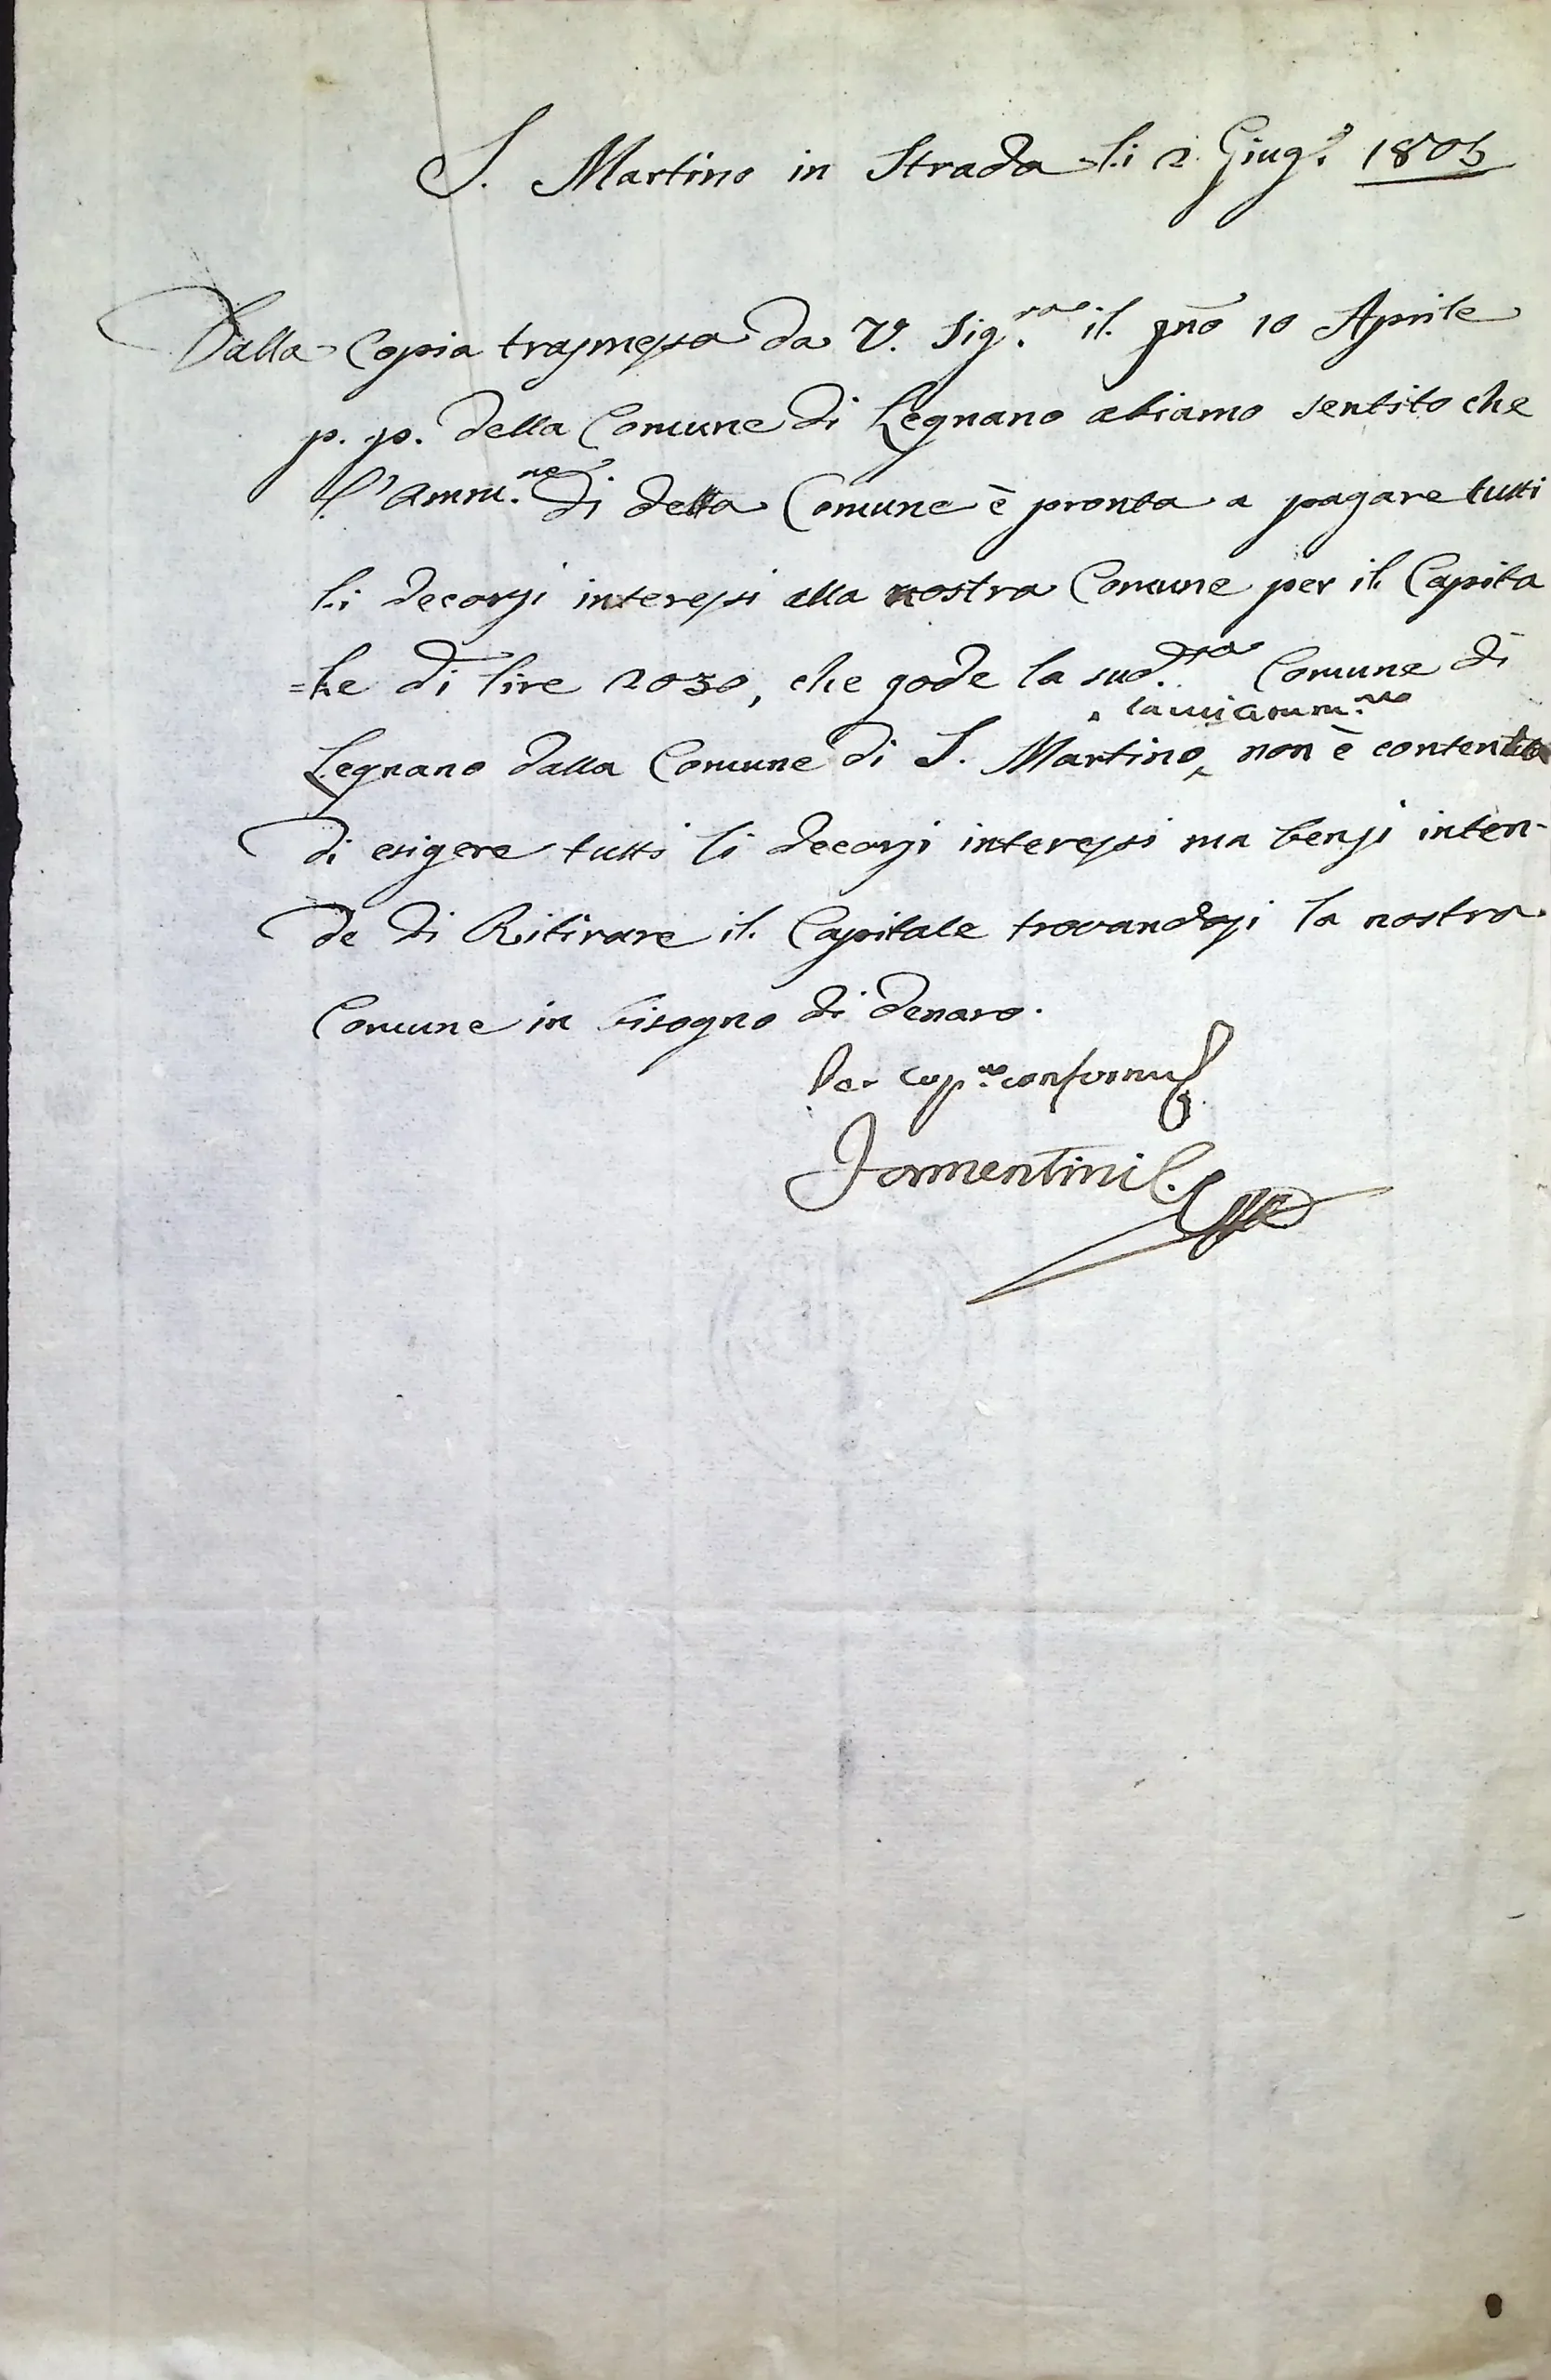 S. Martino in Strada li 2 Giug.o 1805
Dalla Copia trasmessa da V. Sig.ria il gño 10 Aprile
p. p. della Comune di Legnano abiamo sentito che
l'Amm.ne di detta Comune è pronta a pagare tutti
li decorsi interessi alla nostra Comune per il Capita
=le di lire 2030, che gode la sud.ta Comune di
la mia amm.ne
Legnano dalla Comune di S. Martino, non è contenta
di esigere tutti li decorsi interessi ma bensi inten-
de di Ritirare il Capitale trovandosi la nostra
Comune in bisogno di denaro.
Per cop.a conforme
Formentini C.